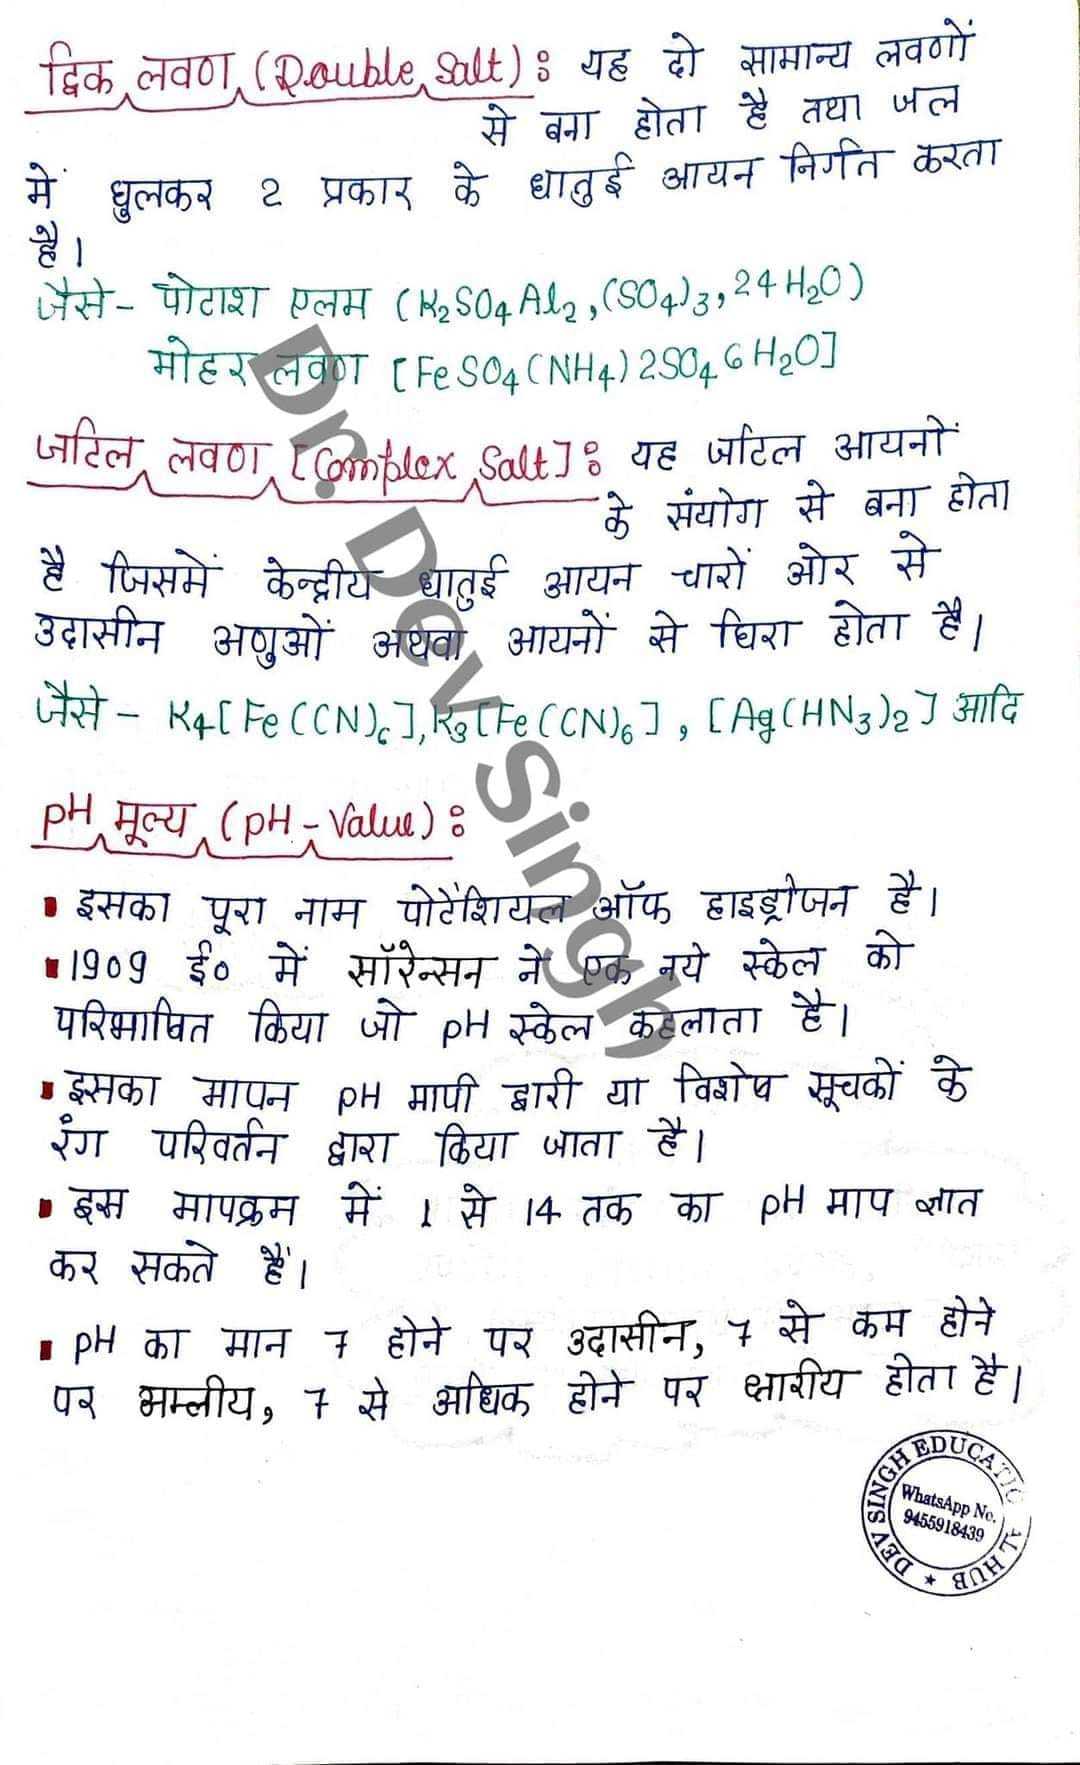 द्विक लवण (Double Salt) : यह दो सामान्य लवणों
से बना होता है तथा जल
में घुलकर 2 प्रकार के धातुई आयन निर्गत करता
है।
जैसे - पोटाश एलम (K₂SO₄Al₂,(SO₄)₃,24H₂O)
मोहर लवण [FeSO₄(NH₄)2SO₄6H₂O]
जटिल लवण [Complex Salt] : यह जटिल आयनों
के संयोग से बना होता
है जिसमें केन्द्रीय धातुई आयन चारों ओर से
उदासीन अणुओं अथवा आयनों से घिरा होता है।
जैसे - K₄[Fe(CN)₆], K₃[Fe(CN)₆], [Ag(HN₃)₂] आदि
pH मूल्य (pH - Value) :
▪ इसका पूरा नाम पोटेंशियल ऑफ हाइड्रोजन है।
▪ 1909 ई० में सॉरेन्सन ने एक नये स्केल को
परिभाषित किया जो pH स्केल कहलाता है।
▪ इसका मापन pH मापी द्वारी या विशेष सूचकों के
रंग परिवर्तन द्वारा किया जाता है।
▪ इस मापक्रम में 1 से 14 तक का pH माप ज्ञात
कर सकते हैं।
▪ pH का मान 7 होने पर उदासीन, 7 से कम होने
पर अम्लीय, 7 से अधिक होने पर क्षारीय होता है।
Dr. Dev Singh
DEV SINGH EDUCATIONAL HUB
WhatsApp No.
9455918439